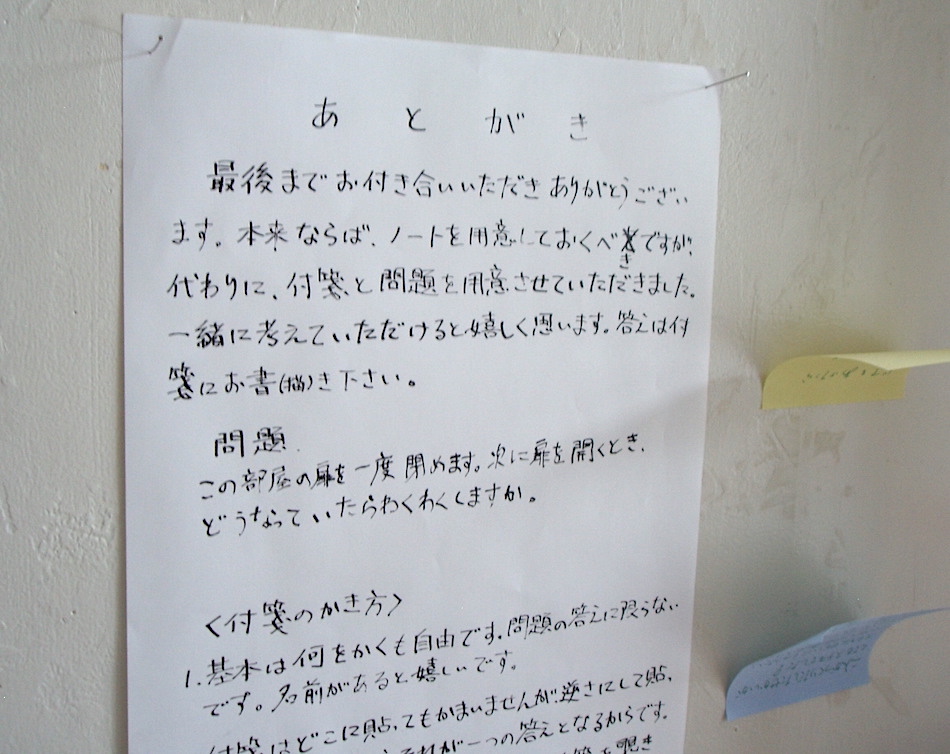 あとがき
最後までお付き合いいただきありがとうござい
ます。本来ならば、ノートを用意しておくべきですが、
代わりに、付箋と問題を用意させていただきました。
一緒に考えていただけると嬉しく思います。答えは付
箋にお書(描)き下さい。
問題
この部屋の扉を一度閉めます。次に扉を開くとき、
どうなっていたらわくわくしますか。
〈付箋のかき方〉
1. 基本は何をかくも自由です。問題の答えに限らない
です。名前があると嬉しいです。
付箋はどこに貼ってもかまいませんが、逆さにして貼
それが一つの答えとなるからです。
箋を覗き